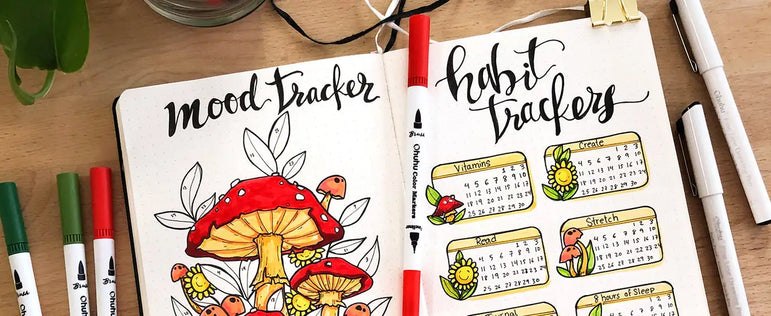 mood tracker
habit
trackers
Vitamins
1 2 3
4 5 6 7 8 9 10
11 12 13 14 15 16 17
18 19 20 21 22 23 24
25 26 27 28 29 30
Create
1 2 3
4 5 6 7 8 9 10
11 12 13 14 15 16 17
18 19 20 21 22 23 24
25 26 27 28 29 30
Read
1 2 3
4 5 6 7 8 9 10
11 12 13 14 15 16 17
18 19 20 21 22 23 24
25 26 27 28 29 30
Stretch
1 2 3
4 5 6 7 8 9 10
11 12 13 14 15 16 17
18 19 20 21 22 23 24
25 26 27 28 29 30
Journal
8 hours of Sleep
1 2 3
Brush
Ohuhu Color Markers
Brush
Brush
Ohuhu
Brush
Ohuhu
Ohuhu